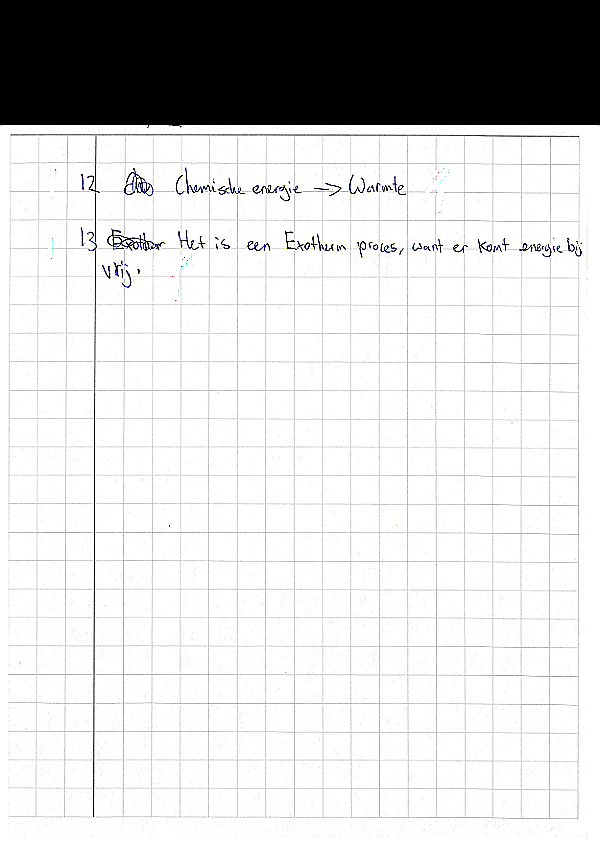 12 Chemische energie -> Warmte
13 Het is een Exotherm proces, want er komt energie bij
vrij.